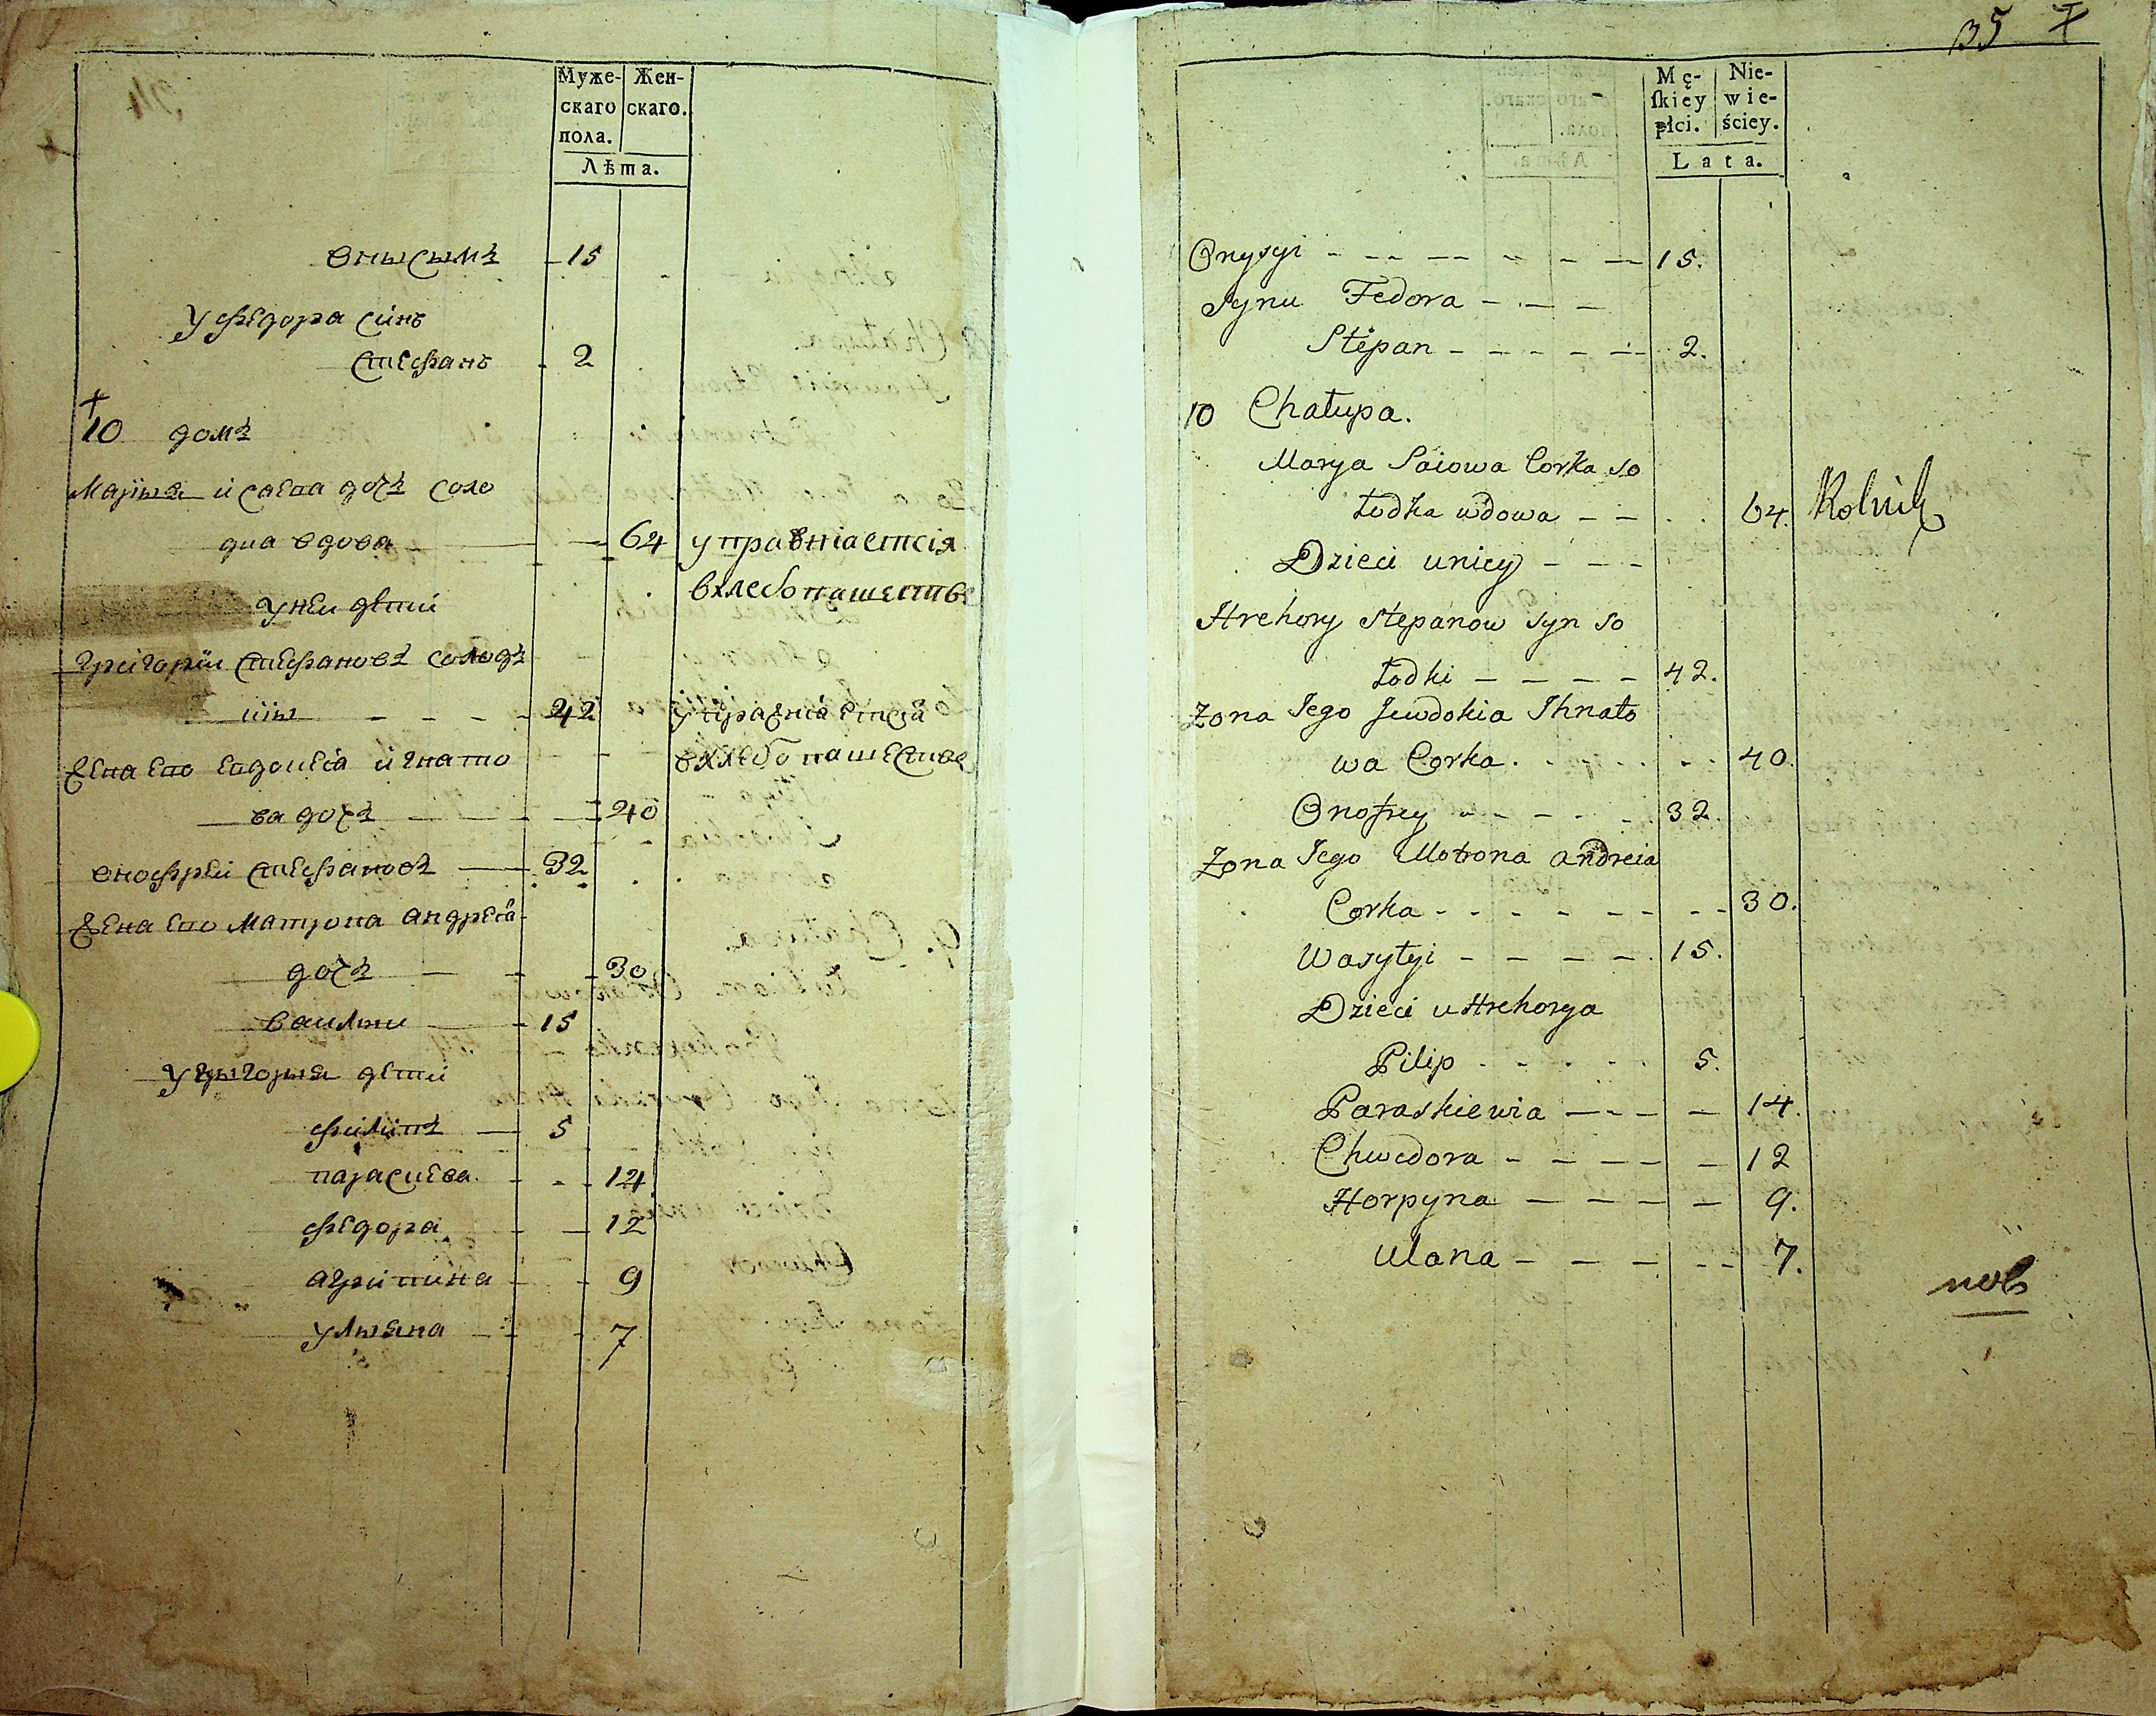 Муже- Жен-
скаго скаго.
пола.
Лѣта.
Онысымъ - 15
У Федора синъ
Стефанъ - 2
10 домъ
Марыя Исаева дочъ соло
дка вдова - 64 управніаетсія
вхлебопашества
У неи дети
Григорій Стефановъ солодъ
кій - - - - 42 управніаетсія
вхлебопашестве
Жена его Евдокеія Игнато
ва дочъ - - - 40
Онофреи Стефановъ — 32
Жена его Матрона Андреіа
дочъ - - - 30
Василии - 15
У Грыгорыя дети
Филипъ - 5
Параскева - - - 14
Федора - - 12
Агрипина - - 9
Улыяна - - 7
35
Mę- Nie-
ſkiey wie-
płci. ściey.
Lata.
Onysyi - - - - - - 15.
Synu Fedora - - -
Stepan - - - - - 2.
10 Chałupa.
Marya Saiowa Corka so
łodka wdowa - - . . 64. Rolnik
Dzieci u nicy - - -
Hrehory Stepanow Syn so
łodki - - - - 42.
Zona Jego Jewdokia Ihnato
wa Corka . - - . . - - 40.
Onofrey - - - - - 32.
Zona Jego Motrona Andreia
Corka - - - - - - - - 30.
Wasylyi - - - - 15.
Dzieci u Hrehorya
Pilip - - - - - 5.
Paraskiewia - - - - 14.
Chwedora - - - - - 12
Horpyna - - - - - 9.
Ulana - - - - - 7.